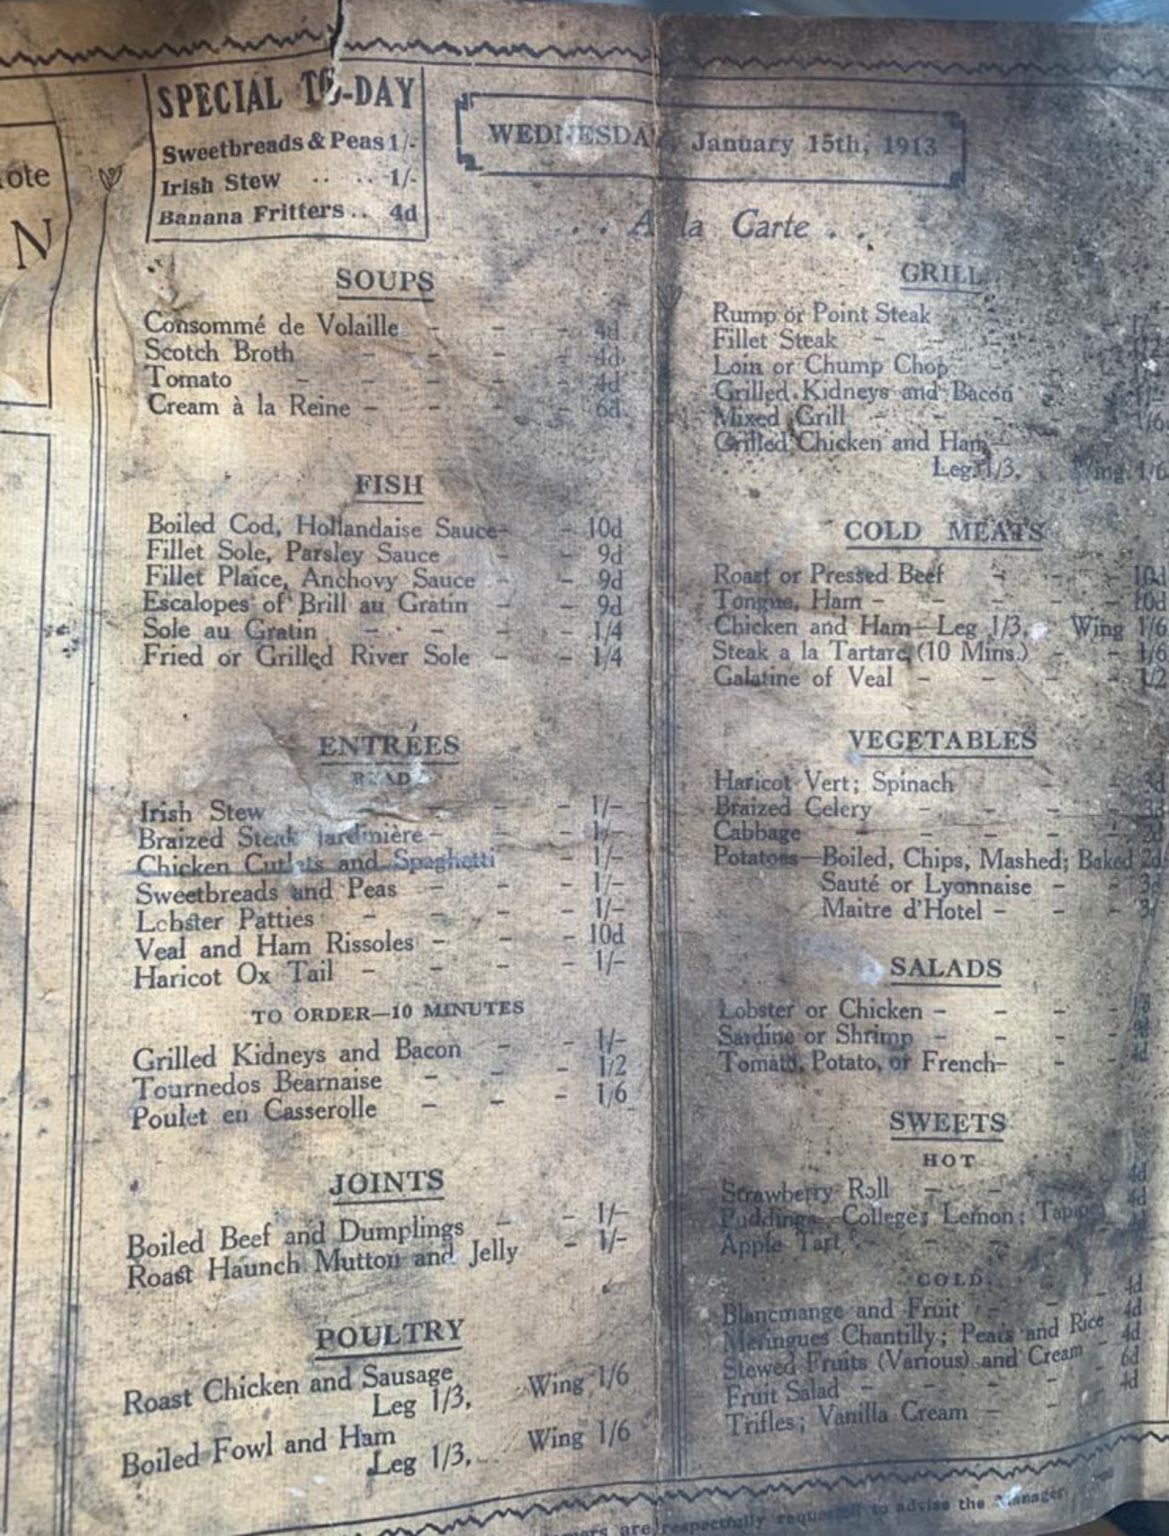 ote
N
SPECIAL TO-DAY
Sweetbreads & Peas 1/-
Irish Stew .. .. 1/-
Banana Fritters .. 4d
WEDNESDAY, January 15th, 1913
. . A la Carte . .
SOUPS
Consommé de Volaille - - - 4d
Scotch Broth - - - 4d
Tomato - - - - 4d
Cream à la Reine - - - - 6d
FISH
Boiled Cod, Hollandaise Sauce- - 10d
Fillet Sole, Parsley Sauce - - 9d
Fillet Plaice, Anchovy Sauce - - 9d
Escalopes of Brill au Gratin - - 9d
Sole au Gratin - - - - 1/4
Fried or Grilled River Sole - - 1/4
ENTRÉES
READY
Irish Stew - - - 1/-
Braized Steak Jardinière - - - 1/-
Chicken Cutlets and Spaghetti - 1/-
Sweetbreads and Peas - - - 1/-
Lobster Patties - - - 1/-
Veal and Ham Rissoles - - - 10d
Haricot Ox Tail - - - - 1/-
TO ORDER—10 MINUTES
Grilled Kidneys and Bacon - - 1/-
Tournedos Bearnaise - - - 1/2
Poulet en Casserolle - - - 1/6
JOINTS
Boiled Beef and Dumplings - - 1/-
Roast Haunch Mutton and Jelly - 1/-
POULTRY
Roast Chicken and Sausage
Leg 1/3, Wing 1/6
Boiled Fowl and Ham
Leg 1/3, Wing 1/6
GRILL
Rump or Point Steak
Fillet Steak - -
Loin or Chump Chop
Grilled Kidneys and Bacon 1/-
Mixed Grill - - 1/6
Grilled Chicken and Ham—
Leg 1/3, Wing 1/6
COLD MEATS
Roast or Pressed Beef - - - 10d
Tongue, Ham - - - - 10d
Chicken and Ham—Leg 1/3, Wing 1/6
Steak a la Tartare (10 Mins.) - - 1/6
Galatine of Veal - - - - 1/2
VEGETABLES
Haricot Vert; Spinach - 3d
Braized Celery - - - 3d
Cabbage - - - - 2d
Potatoes—Boiled, Chips, Mashed; Baked 2d
Sauté or Lyonnaise - - 3d
Maitre d'Hotel - - - 3d
SALADS
Lobster or Chicken - - -
Sardine or Shrimp - - -
Tomato, Potato, or French- - - 4d
SWEETS
HOT
Strawberry Roll - - 4d
Puddings—College; Lemon; Tapioca 4d
Apple Tart - - - 4d
COLD
Blancmange and Fruit - - - 4d
Meringues Chantilly; Pears and Rice 4d
Stewed Fruits (Various) and Cream - 4d
Fruit Salad - - - - 6d
Trifles; Vanilla Cream - - - 4d
are respectfully requested to advise the Manager